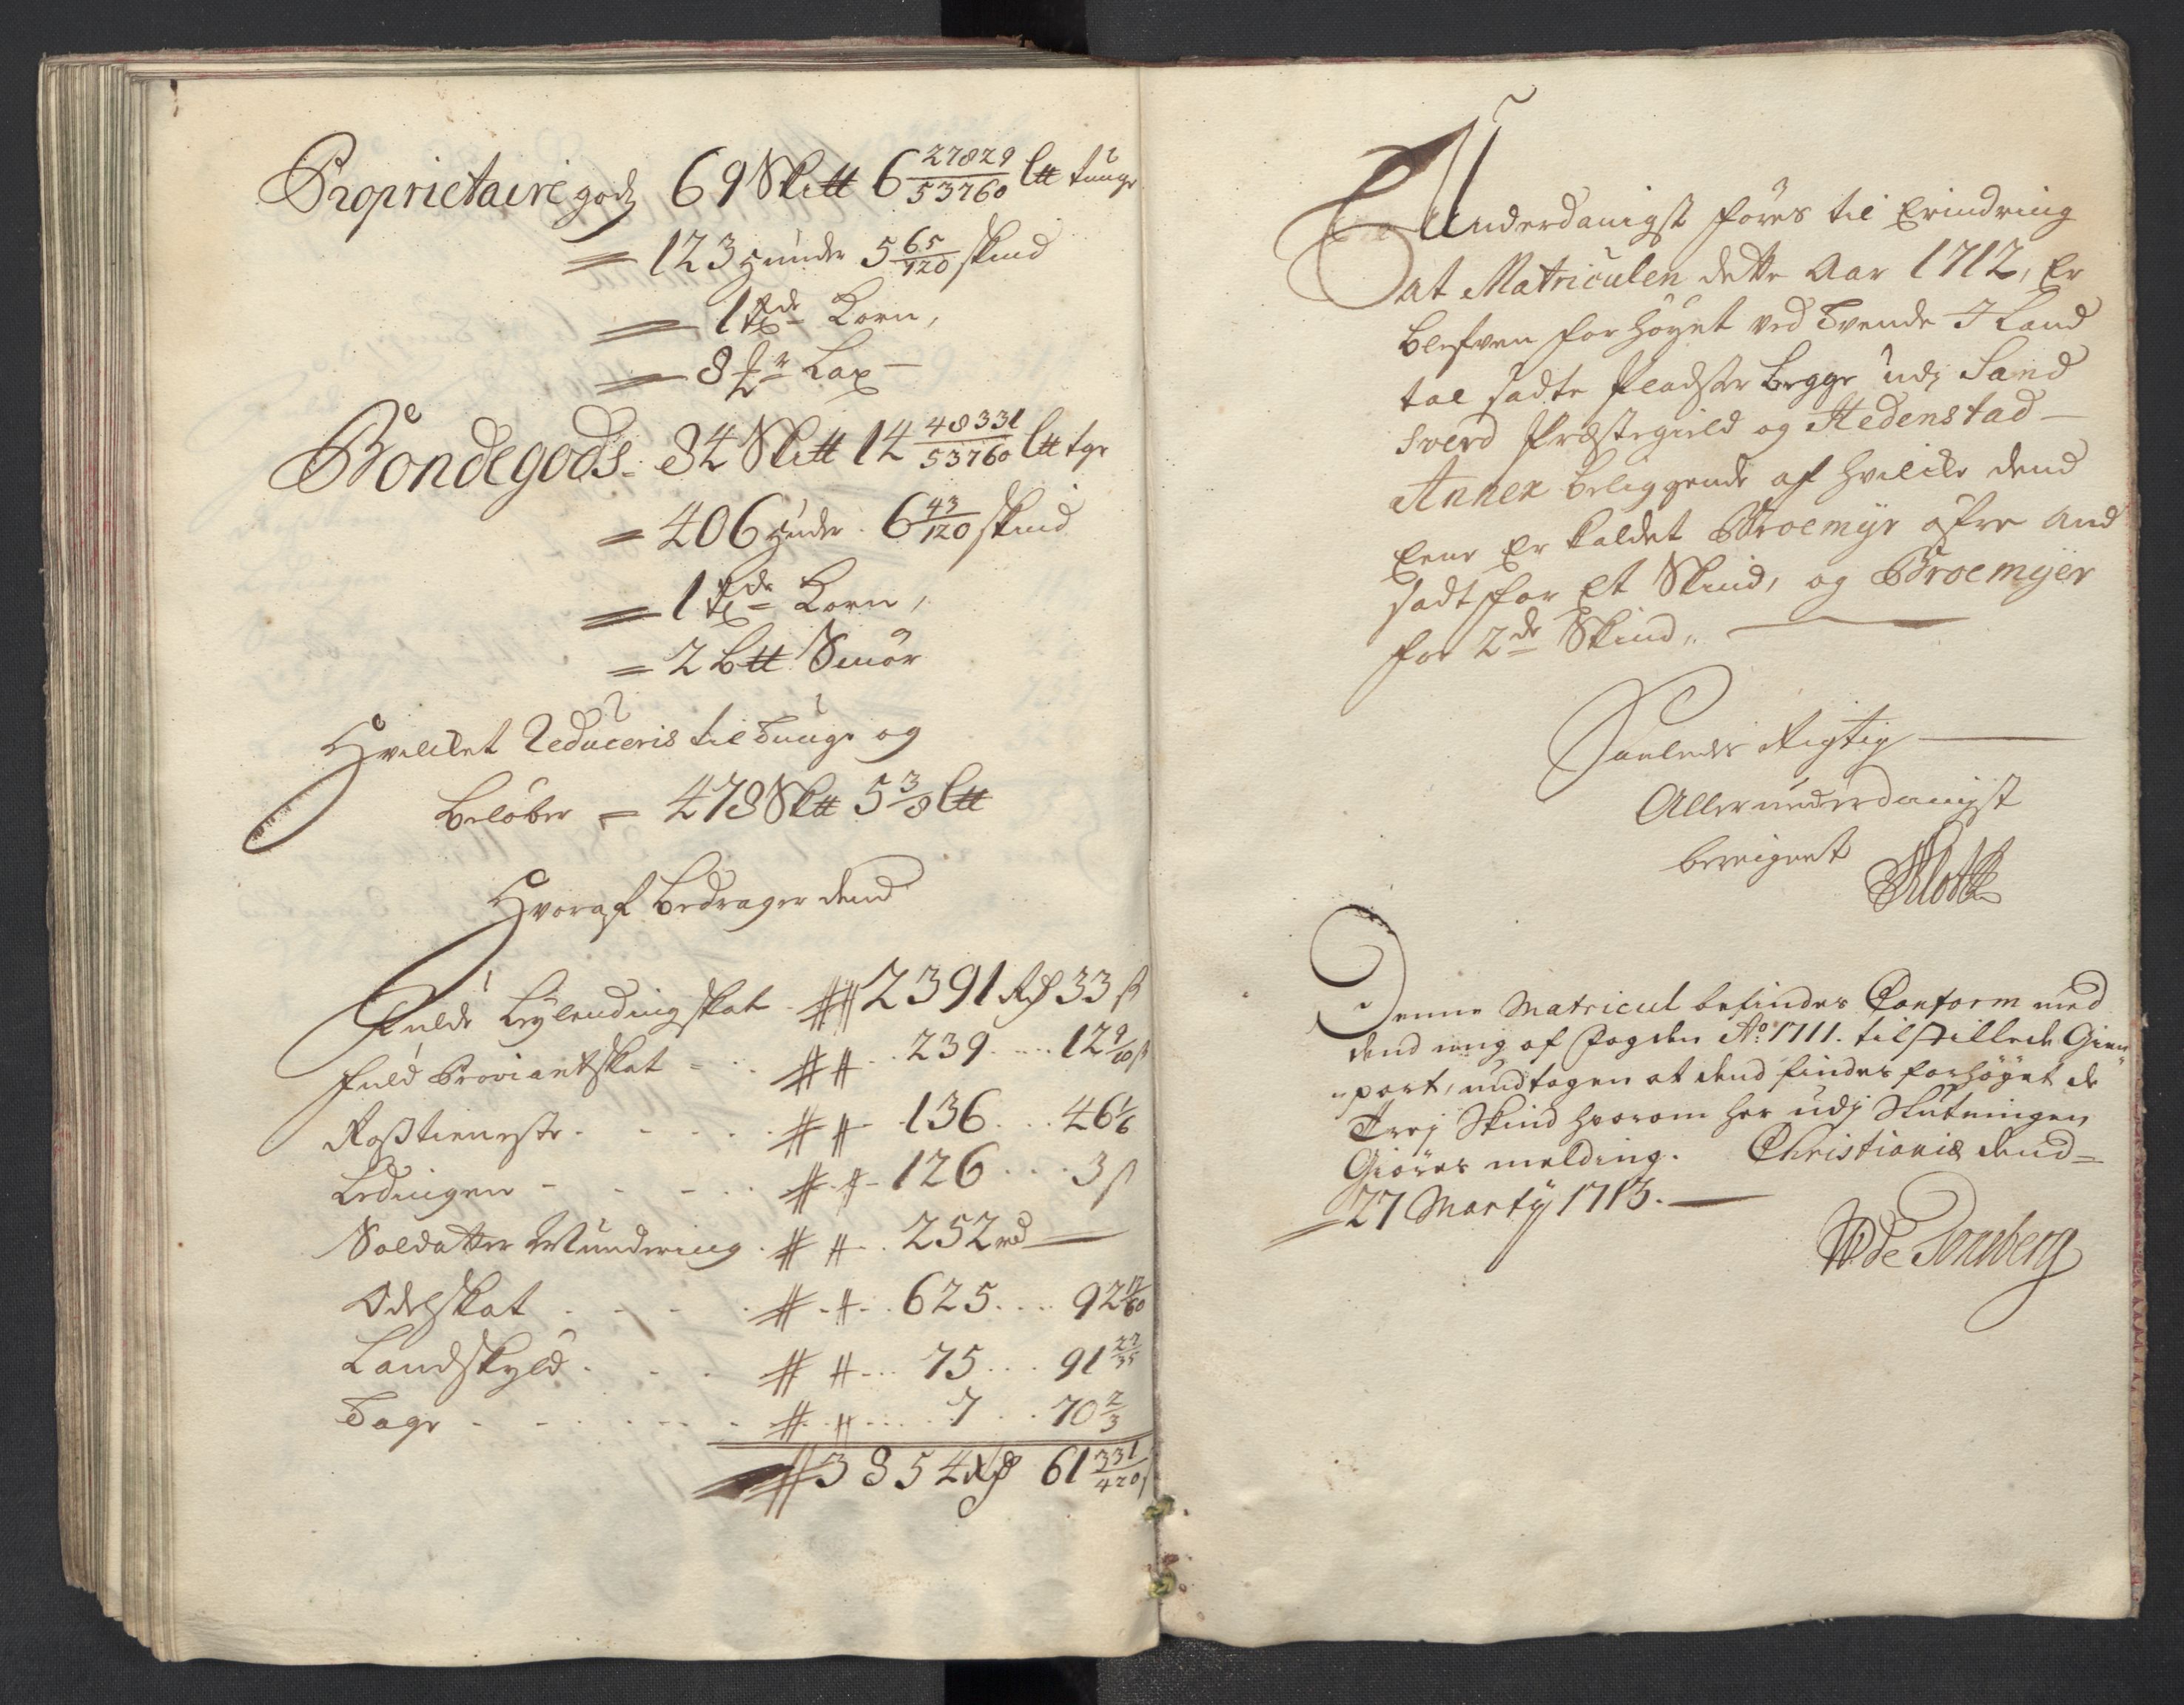 Proprietairie godz 69 Skitt 6 27829/53760 ltt tunge
= 123 hunder 5 65/120 skind
= 1 td Korn,
= 8 Lax
Bondegods. 84 Skitt 14 48331/53760 ltt tge
= 406 huder. 6 43/120 skind
= 1 td Korn,
= 2 btt Smör
Hvilcket Reduceris til Tunge og
beløber = 478 Sktt 5 3/8 ltt
Hvoraf bedrager dend
fulde Leylendingskat 2391 Rd 33 ß
fuld Proviantskat 239 12 9/10 ß
Rostieneste 136 46 1/6
Ledingen 126 3 ß
Soldatter Mundering 252 rd
Odelskat 625 92 17/60
Landskyld 75 91 22/35
Tage 7 70 2/3
3854 Rd 61 331/420 ß
Underdanigst föres til Erindring
at Matriculen dette Aar 1712, Er
blefven forhöyet ved Tvende J Land
tal satte Pladser begge udj Sand
sverd Præstegield og Hedenstad
Annex beliggende af hvilcke dend
Eene Er kaldet Broemyr öfre and
sadt for Et Skind, og Broemyer
for 2de Skind.
Saaledes Rigtig
Allerunderdanigst
bereignet
Denne Matricul befindes Conform med
dend mig af Fogden Ao 1711. tilstillede Gien
part, undtagen at dend findes forhöyet de
Trej Skind hvorom her udj Slutningen
Giöres melding. Christiania dend
27 Marty 1713.
de Tonsberg